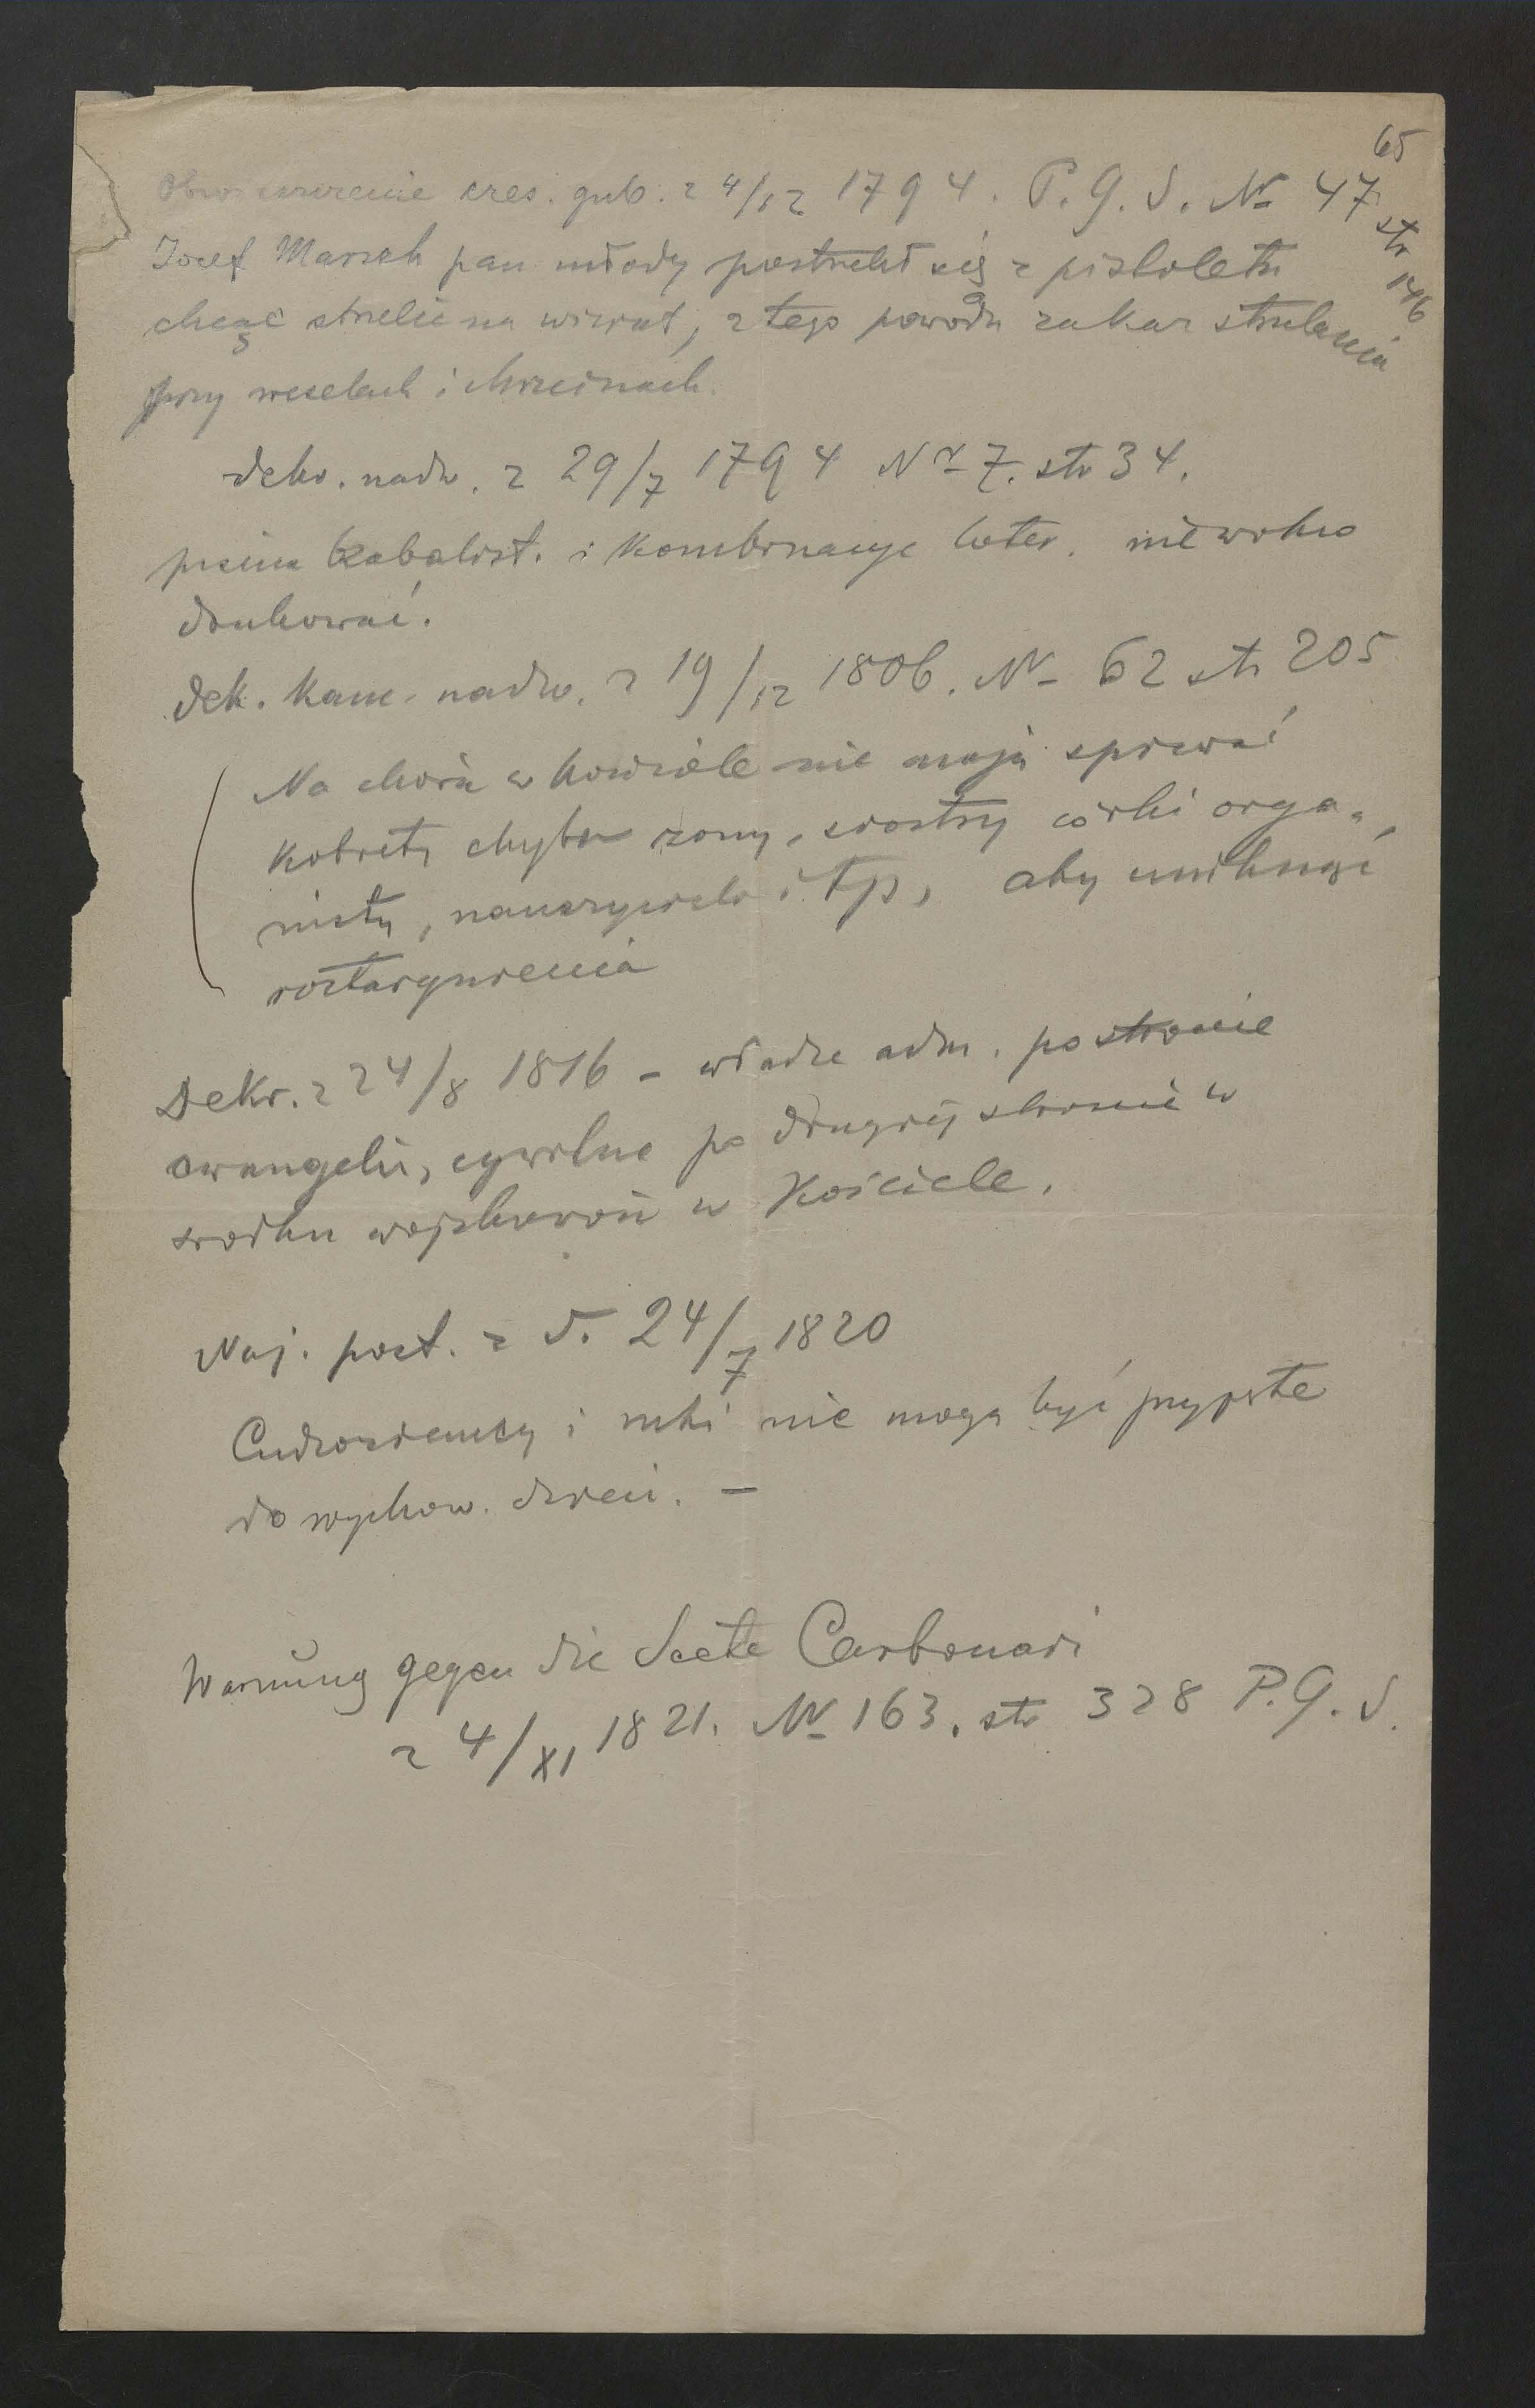 65
Obwieszczenie cres. gub. z 4/12 1794. P. G. S. Nr 47 str 146
Josef Marzek pan młody postrzelił się z pistoletu
chcąc strzelić na wiwat, z tego powodu zakaz strzelania
przy weselach i chrzcinach.
dekr. nadw. z 29/7 1794 Nr 7. str 34.
pisma kabalist. i kombinacye loter. nie wolno
drukować.
dek. kanc. nadw. z 19/12 1806. Nr 62 str 205
Na chórze w kościele nie mają śpiewać
kobiety chyba żony, siostry córki orga-
nisty, nauczyciela i tp, aby uniknąć
roztargnienia
Dekr. z 24/8 1816 – władze adm. po stronie
ewangelii, cywilne po drugiej stronie w
środku wojskowość w Kościele.
Naj. post. z d. 24/7 1820
Cudzoziemcy i nie mogą być przypste
do wychow. dzieci. –
Warnung gegen die Secte Carbonari
z 4/XI 1821. Nr 163. str 328 P. G. S.